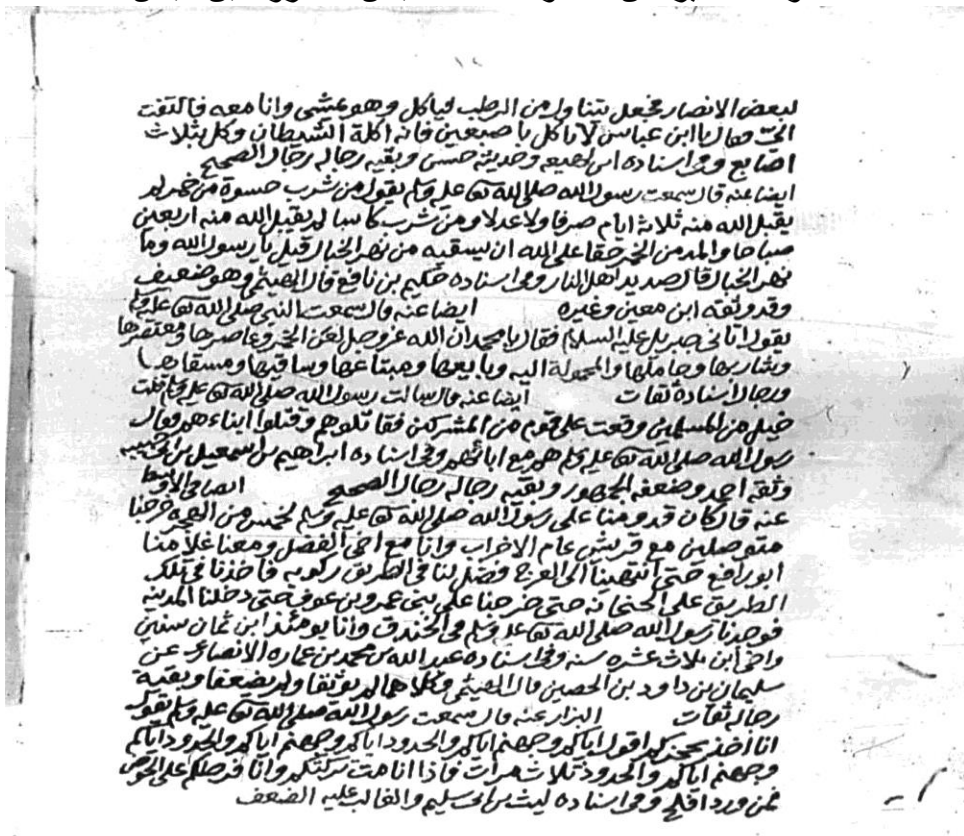 ١٤
لبعض الانصار فجعل يتناول من الرطب فياكل وهو يمشي وانا معه فالتفت
اليّ وقال يا ابن عباس لا تاكل باصبعين فانه اكلة الشيطان وكل بثلاث
اصابع وفي اسناده ابن لهيعه وحديثه حسن وبقيه رجاله رجال الصحيح
ايضا عنه قال سمعت رسول الله صلى الله تعالى عليه وسلم يقول من شرب حسوة من خمر لم
يقبل الله منه ثلاثة ايام صرفا ولا عدلا ومن شرب كاسا لم يقبل الله منه اربعين
صباحا والمدمن الخمر حقا على الله ان يسقيه من نهر الخبال قيل يا رسول الله وما
نهر الخبال قال صديد اهل النار وفي اسناده حكيم بن نافع قال الهيثمي وهو ضعيف
وقد وثقه ابن معين وغيره ايضا عنه قال سمعت النبي صلى الله تعالى عليه وسلم
يقول اتاني جبريل عليه السلام فقال يا محمد ان الله عز وجل لعن الخمر وعاصرها ومعتصرها
وشاربها وحاملها والمحمولة اليه وبايعها ومبتاعها وساقيها ومسقاها
ورجال اسناده ثقات ايضا عنه قال سالت رسول الله صلى الله تعالى عليه وسلم قلت
خيل من المسلمين وقعت على قوم من المشركين فقاتلوهم وقتلوا ابناءهم فقال
رسول الله صلى الله تعالى عليه وسلم هم مع ابائهم وفي اسناده ابراهيم بن اسمعيل بن ابي حبيبه
وثقه احمد وضعفه الجمهور وبقيه رجاله رجال الصحيح ايضا في الاوسط
عنه قال كان قدومنا على رسول الله صلى الله تعالى عليه وسلم لخمس من الهجره خرجنا
متوصلين مع قريش عام الاحزاب وانا مع اخي الفضل ومعنا غلامنا
ابو رافع حتى انتهينا الى العرج فضل لنا في الطريق ركوبه فاخذنا في تلك
الطريق على الجثجاثه حتى خرجنا على بني عمرو بن عوف حتى دخلنا المدينه
فوجدنا رسول الله صلى الله تعالى عليه وسلم في الخندق وانا يومئذ ابن ثمان سنين
واخي ابن ثلاث عشره سنه وفي اسناده عبد الله بن محمد بن عماره الانصاري عن
سليمان بن داود بن الحصين قال الهيثمي وكلاهما لم يوثقا ولم يضعفا وبقية
رجاله ثقات البزار عنه قال سمعت رسول الله صلى الله تعالى عليه وسلم يقول
انا اخذ بحجزكم اقول اياكم وجهنم اياكم والحدود اياكم وجهنم اياكم والحدود اياكم
وجهنم اياكم والحدود ثلاث مرات فاذا انا مت تركتكم وانا فرطكم على الحوض
فمن ورد افلح وفي اسناده ليث بن ابي سليم والغالب عليه الضعف